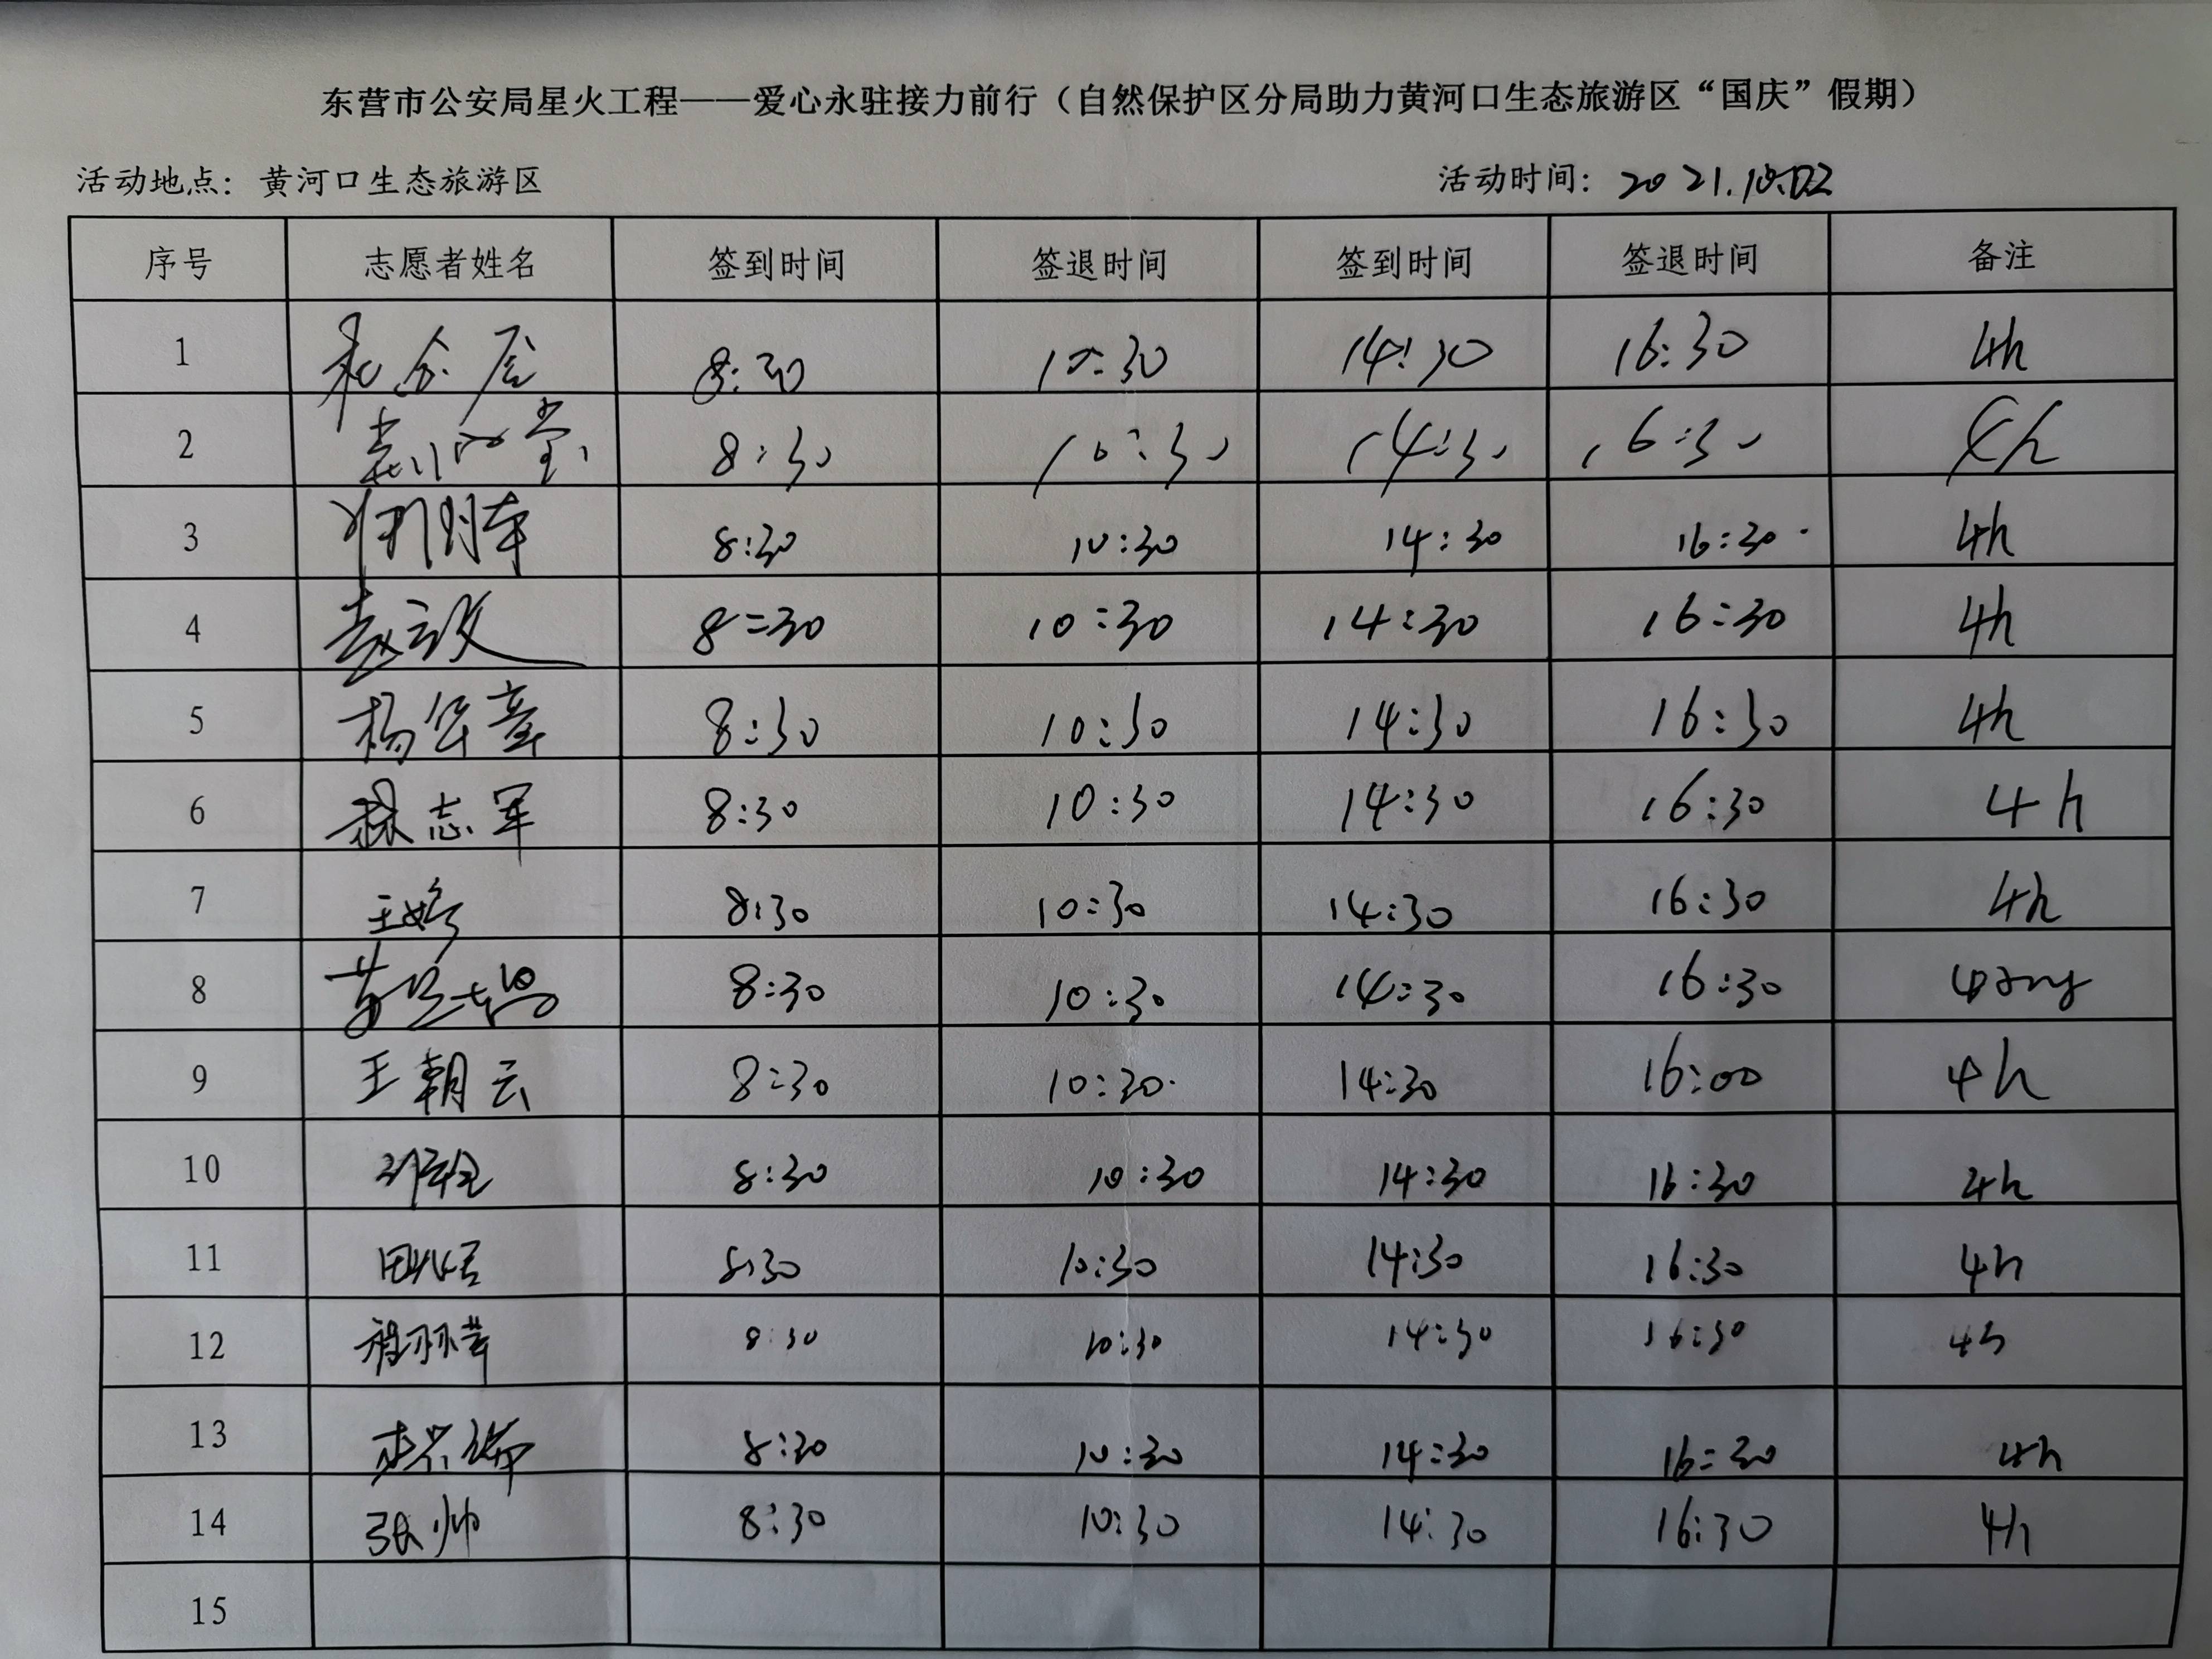 东营市公安局星火工程——爱心永驻接力前行（自然保护区分局助力黄河口生态旅游区“国庆”假期）
活动地点：黄河口生态旅游区 活动时间：2021.10.02
序号 志愿者姓名 签到时间 签退时间 签到时间 签退时间 备注
1 8:30 10:30 14:30 16:30 4h
2 8:30 10:30 14:30 16:30 4h
3 8:30 10:30 14:30 16:30 4h
4 8:30 10:30 14:30 16:30 4h
5 杨华章 8:30 10:30 14:30 16:30 4h
6 志军 8:30 10:30 14:30 16:30 4h
7 王婷 8:30 10:30 14:30 16:30 4h
8 8:30 10:30 14:30 16:30
9 王朝云 8:30 10:30 14:30 16:00 4h
10 8:30 10:30 14:30 16:30 4h
11 8:30 10:30 14:30 16:30 4h
12 8:30 10:30 14:30 16:30 4h
13 8:30 10:30 14:30 16:30 4h
14 张帅 8:30 10:30 14:30 16:30 4h
15